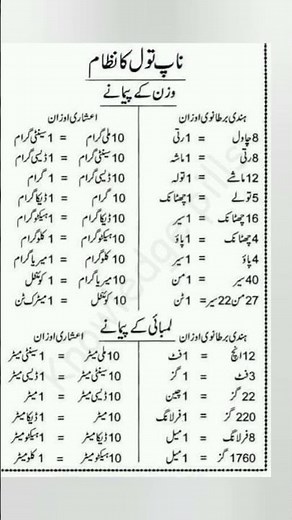 ناپ تول کا نظام
وزن کے پیمانے
ہندی برطانوی اوزان
اعشاری اوزان
8 چاول = 1 رتی
10 ملی گرام = 1 سینٹی گرام
8 رتی = 1 ماشہ
10 سینٹی گرام = 1 ڈیسی گرام
12 ماشے = 1 تولہ
10 ڈیسی گرام = 1 گرام
5 تولے = 1 چھٹانک
10 گرام = 1 ڈیکا گرام
16 چھٹانک = 1 سیر
10 ڈیکا گرام = 1 ہیکٹو گرام
4 چھٹانک = 1 پاؤ
10 ہیکٹو گرام = 1 کلو گرام
4 پاؤ = 1 سیر
10 کلو گرام = 1 میریا گرام
40 سیر = 1 من
10 میریا گرام = 1 کوئنٹل
27 من 22 سیر = 1 ٹن
10 کوئنٹل = 1 میٹرک ٹن
لمبائی کے پیمانے
ہندی برطانوی اوزان
اعشاری اوزان
12 انچ = 1 فٹ
10 ملی میٹر = 1 سینٹی میٹر
3 فٹ = 1 گز
10 سینٹی میٹر = 1 ڈیسی میٹر
22 گز = 1 چین
10 ڈیسی میٹر = 1 میٹر
220 گز = 1 فرلانگ
10 میٹر = 1 ڈیکا میٹر
8 فرلانگ = 1 میل
10 ڈیکا میٹر = 1 ہیکٹو میٹر
1760 گز = 1 میل
10 ہیکٹو میٹر = 1 کلو میٹر